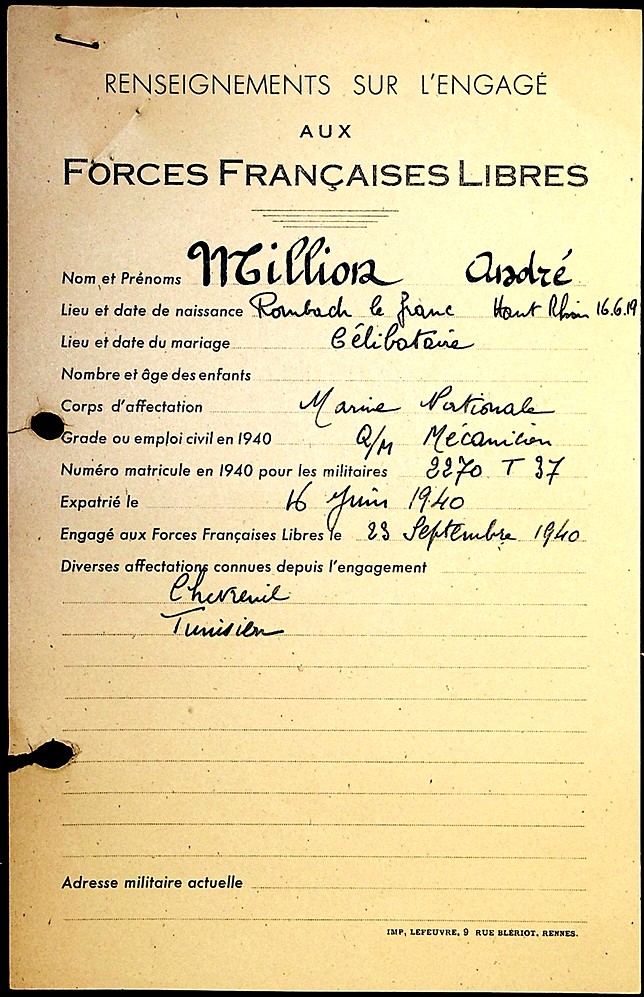 RENSEIGNEMENTS SUR L'ENGAGÉ
AUX
FORCES FRANÇAISES LIBRES
Nom et Prénoms Million André
Lieu et date de naissance Rombach le franc Haut Rhin 16.6.19
Lieu et date du mariage Célibataire
Nombre et âge des enfants
Corps d'affectation Marine Nationale
Grade ou emploi civil en 1940 Q/M Mécanicien
Numéro matricule en 1940 pour les militaires 2270 T 37
Expatrié le 16 Juin 1940
Engagé aux Forces Françaises Libres le 23 Septembre 1940
Diverses affectations connues depuis l'engagement
Chevreuil
Tunisien
Adresse militaire actuelle
IMP, LEFEUVRE, 9 RUE BLÉRIOT, RENNES.